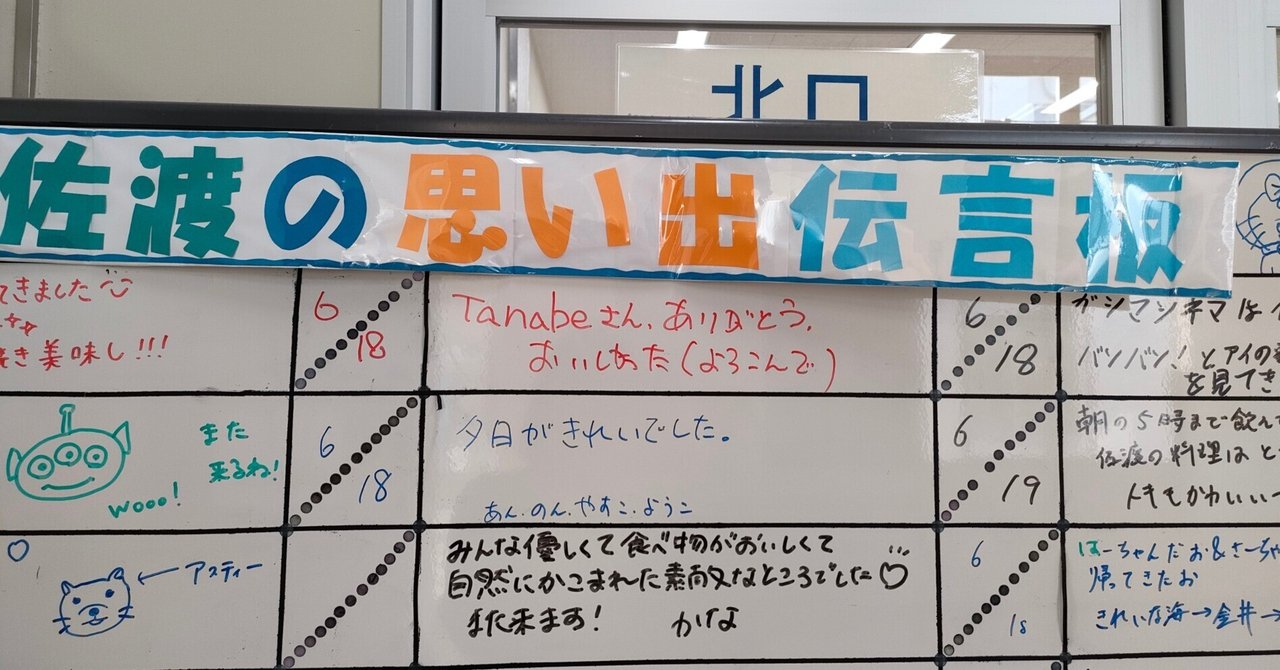 北口
佐渡の思い出伝言板
てきました
き美味し!!!
6
18
Tanabeさん、ありがとう。
おいしかった(よろこんで)
6
18
ガシマシネマは
バンバン!とアイの
を見てき
また
来るね!
wooo!
6
18
夕日がきれいでした。
あん.のん.やすこ.ようこ
6
19
朝の5時まで飲んで
佐渡の料理はと
人もかわいい
アスティー
みんな優しくて食べ物がおいしくて
自然にかこまれた素敵なところでした♡
また来ます! かな
6
18
ほーちゃんだお&さーちゃ
帰ってきたお
きれいな海→金井→